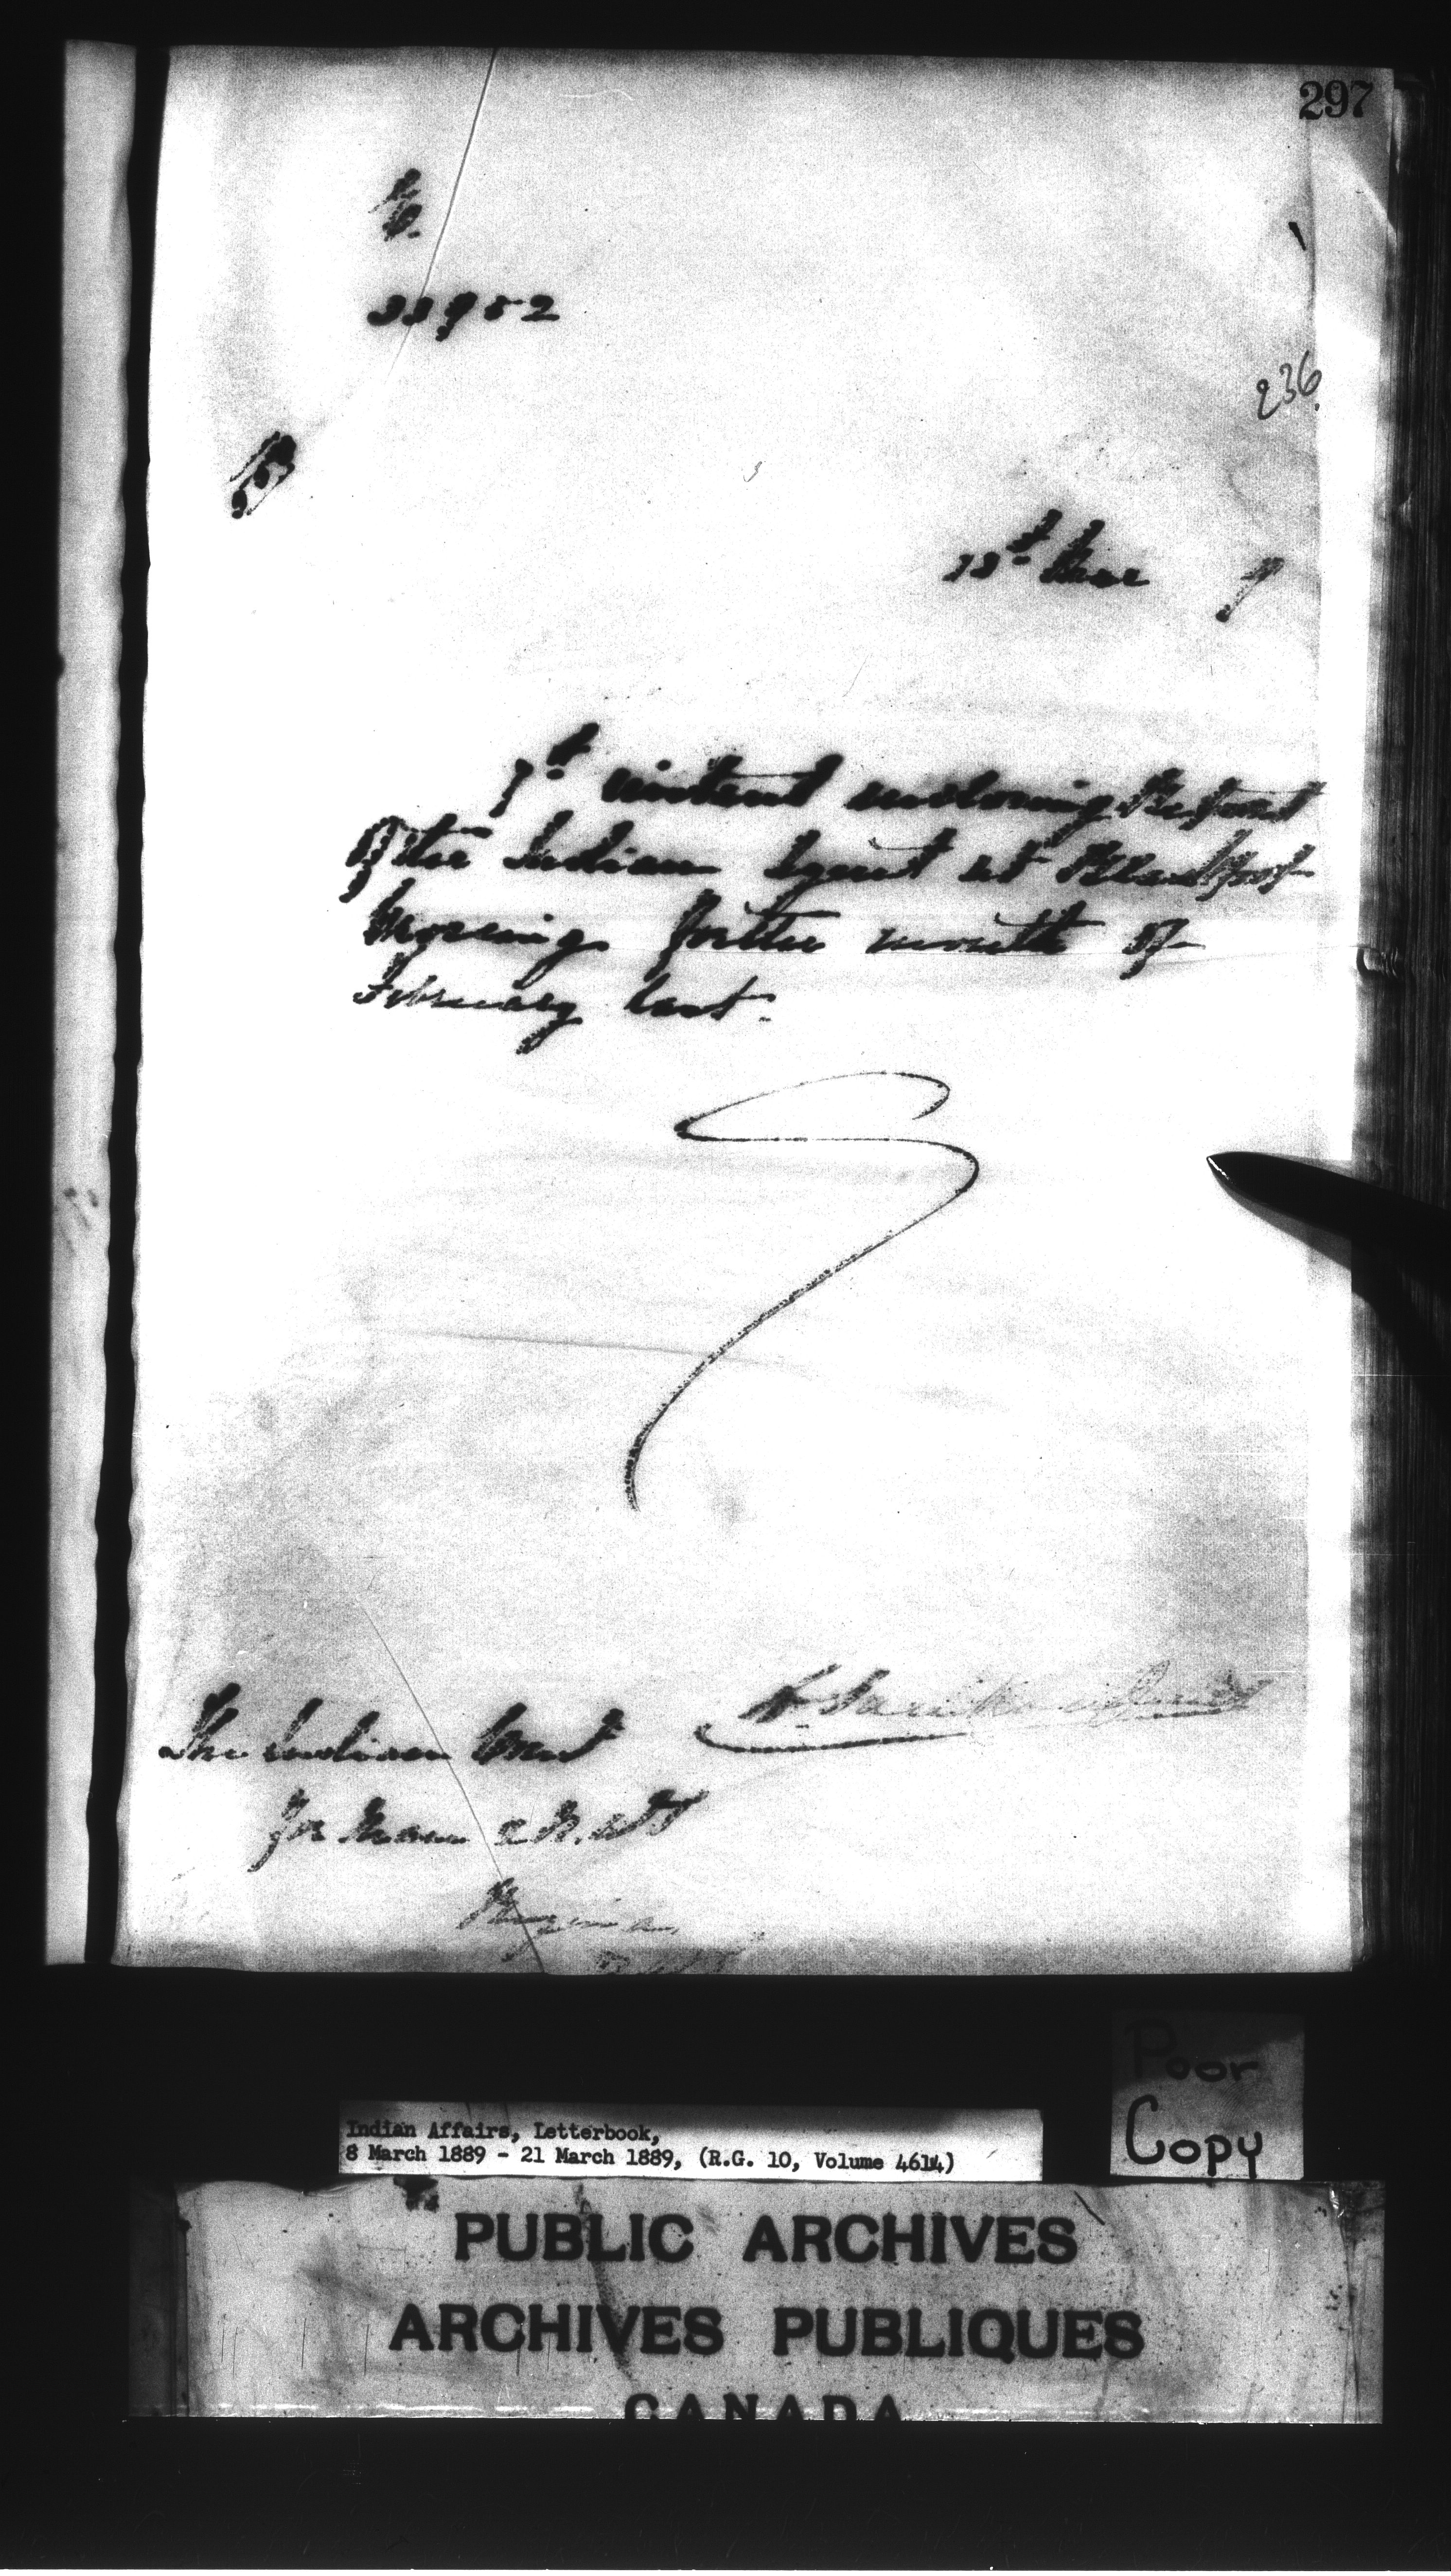 297
33952
236
13th Mar 9
7th instant enclosing Report
of the Indian Agent at Blackfoot
Crossing for the month of
February last.
The Indian Comr
for Man & N.W.T
Regina
Indian Affairs, Letterbook,
8 March 1889 - 21 March 1889, (R.G. 10, Volume 4614)
Poor
Copy
PUBLIC ARCHIVES
ARCHIVES PUBLIQUES
CANADA